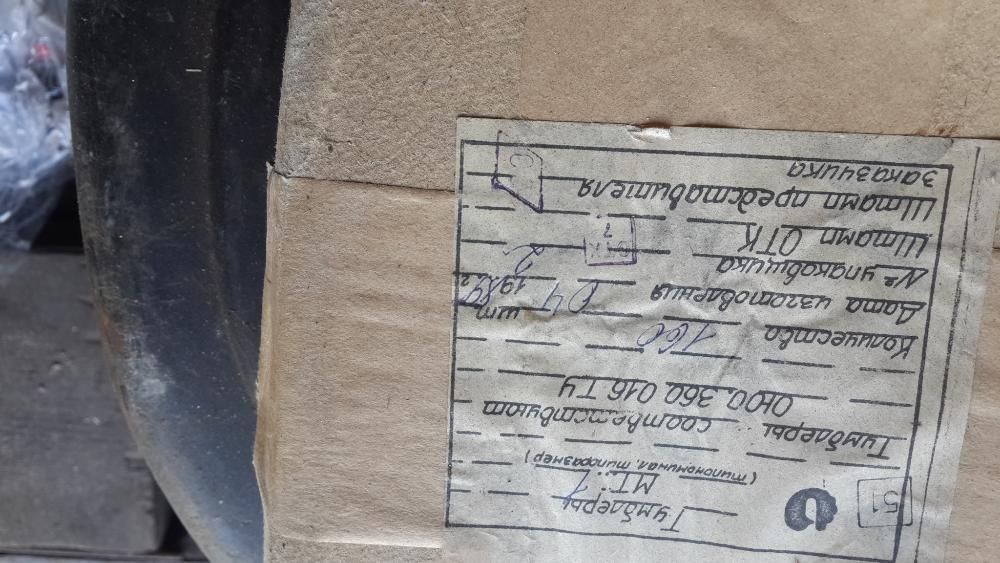 51
Тумблеры
МТ-1
(типономинал, типоразмер)
Тумблеры соответствуют
ОЮ0.360.016 ТУ
Количество 160 шт
Дата изготовления 04 1984г
№ упаковщика 2
Штамп ОТК
Штамп представителя
заказчика